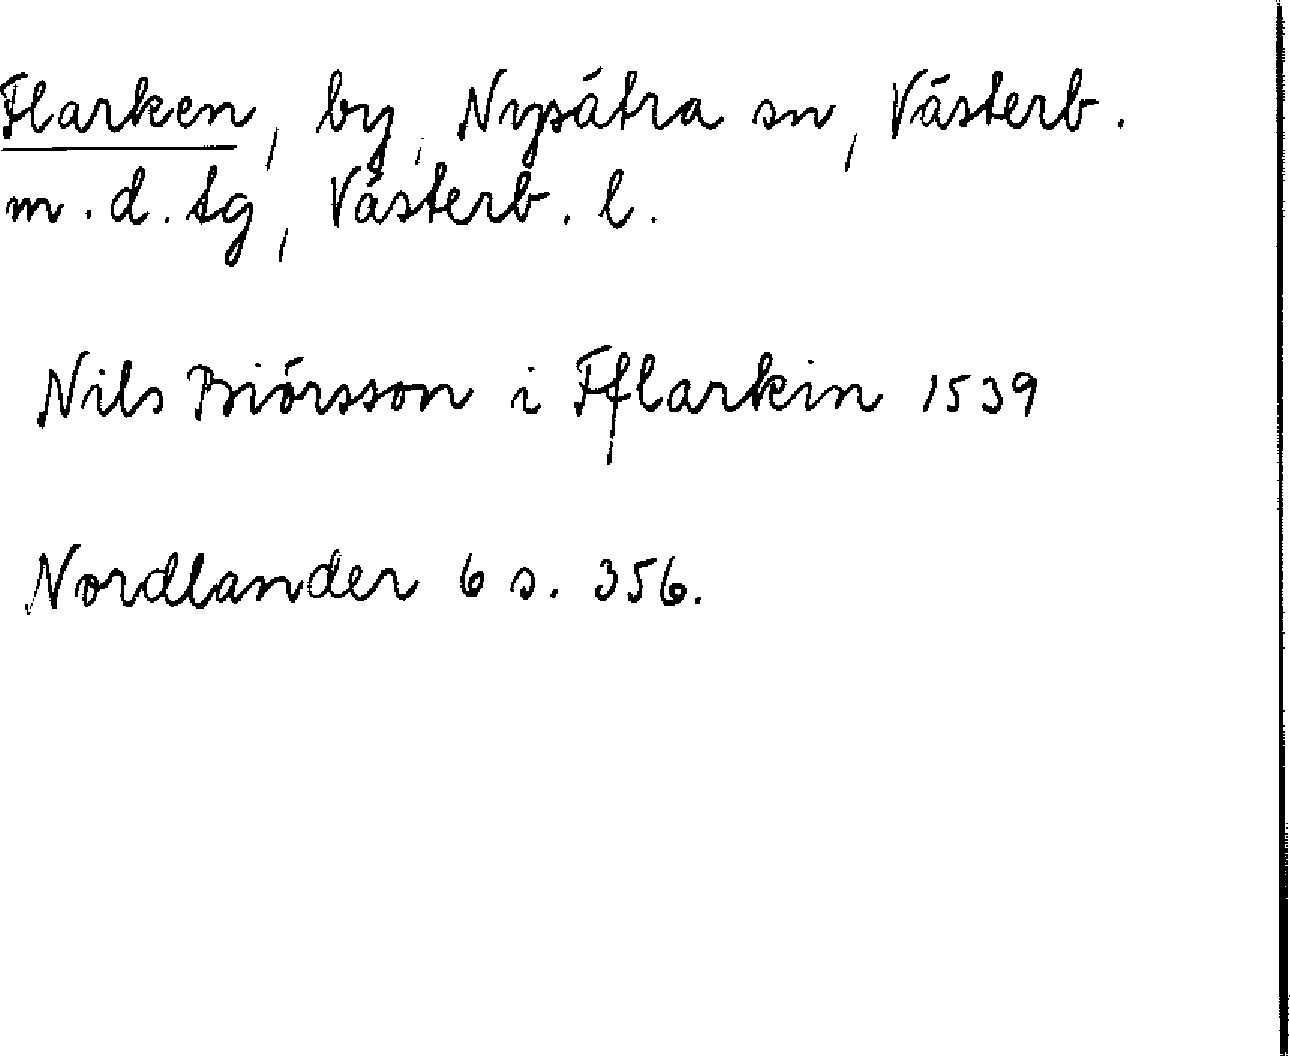 Flarken, by, Nysätra sn, Västerb.
m. d. tg, Västerb. l.
Nils Biörsson i Fflarkin 1539
Nordlander 6 s. 356.